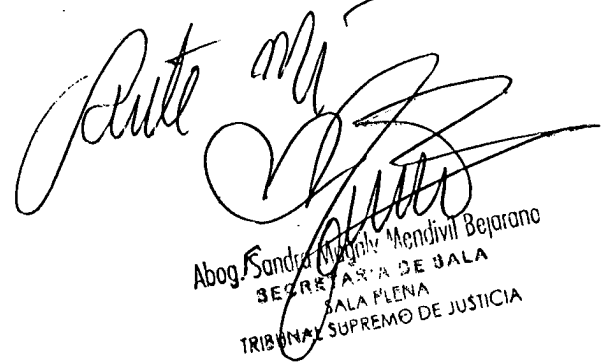 Ante Mí
Abog. Sandra Magaly Mendivil Bejarano
SECRETARIA DE SALA
SALA PLENA
TRIBUNAL SUPREMO DE JUSTICIA